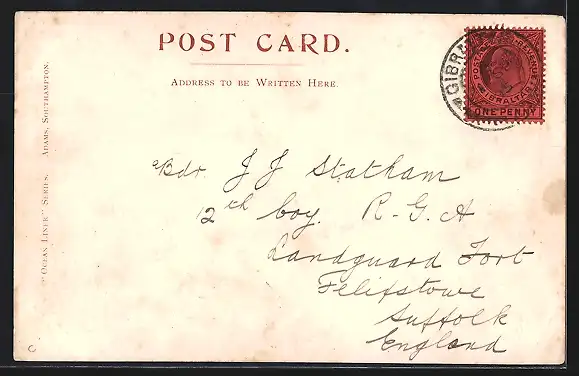 POST CARD.
ADDRESS TO BE WRITTEN HERE.
"OCEAN LINER" SERIES. ADAMS, SOUTHAMPTON.
GIBRALTAR
POSTAGE & REVENUE
GIBRALTAR
ONE PENNY
Bdr. J J Statham
12th Coy. R-G.A
Landguard Fort
Felixstowe
Suffolk
England
C